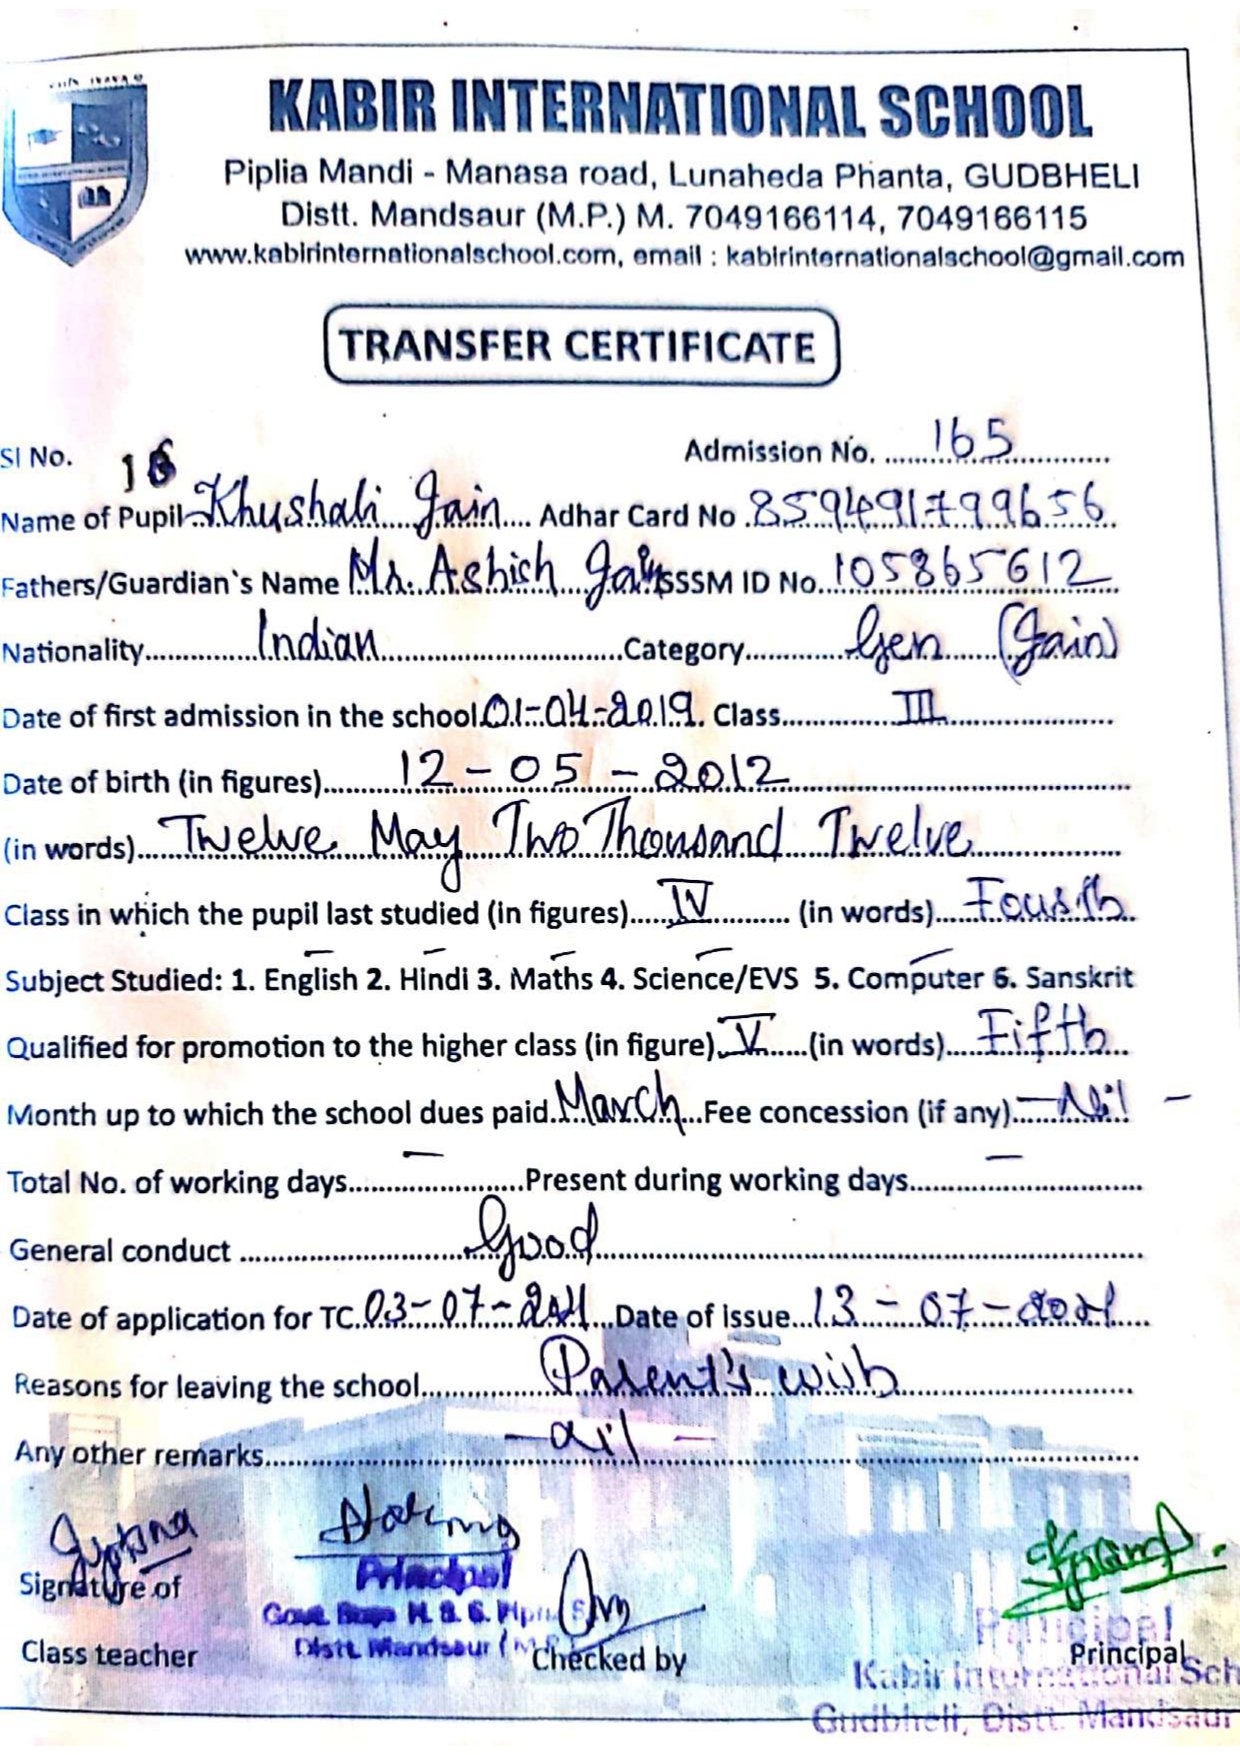 KABIR INTERNATIONAL SCHOOL
Piplia Mandi - Manasa road, Lunaheda Phanta, GUDBHELI
Distt. Mandsaur (M.P.) M. 7049166114, 7049166115
www.kabirinternationalschool.com, email : kabirinternationalschool@gmail.com
TRANSFER CERTIFICATE
Sl No. Admission No. 165
Name of Pupil Khushali Jain Adhar Card No 859491799656
Fathers/Guardian`s Name Mr. Ashish Jain SSSM ID No. 105865612
Nationality Indian Category Gen (Jain)
Date of first admission in the school 01-04-2019. Class III
Date of birth (in figures) 12-05-2012
(in words) Twelve May Two Thousand Twelve
Class in which the pupil last studied (in figures) IV (in words) Fourth
Subject Studied: 1. English 2. Hindi 3. Maths 4. Science/EVS 5. Computer 6. Sanskrit
Qualified for promotion to the higher class (in figure) V (in words) Fifth
Month up to which the school dues paid March Fee concession (if any) - Nil -
Total No. of working days - Present during working days -
General conduct Good
Date of application for TC 03-07-2021 Date of issue 13-07-2021
Reasons for leaving the school Parent's wish
Any other remarks - nil -
Signature of
Class teacher
Principal
Govt. Boys H. S. S.
Distt. Mandsaur (M.P.
Checked by
Principal
Principal
Kabir International Sch
Gudbheli, Distt. Mandsaur